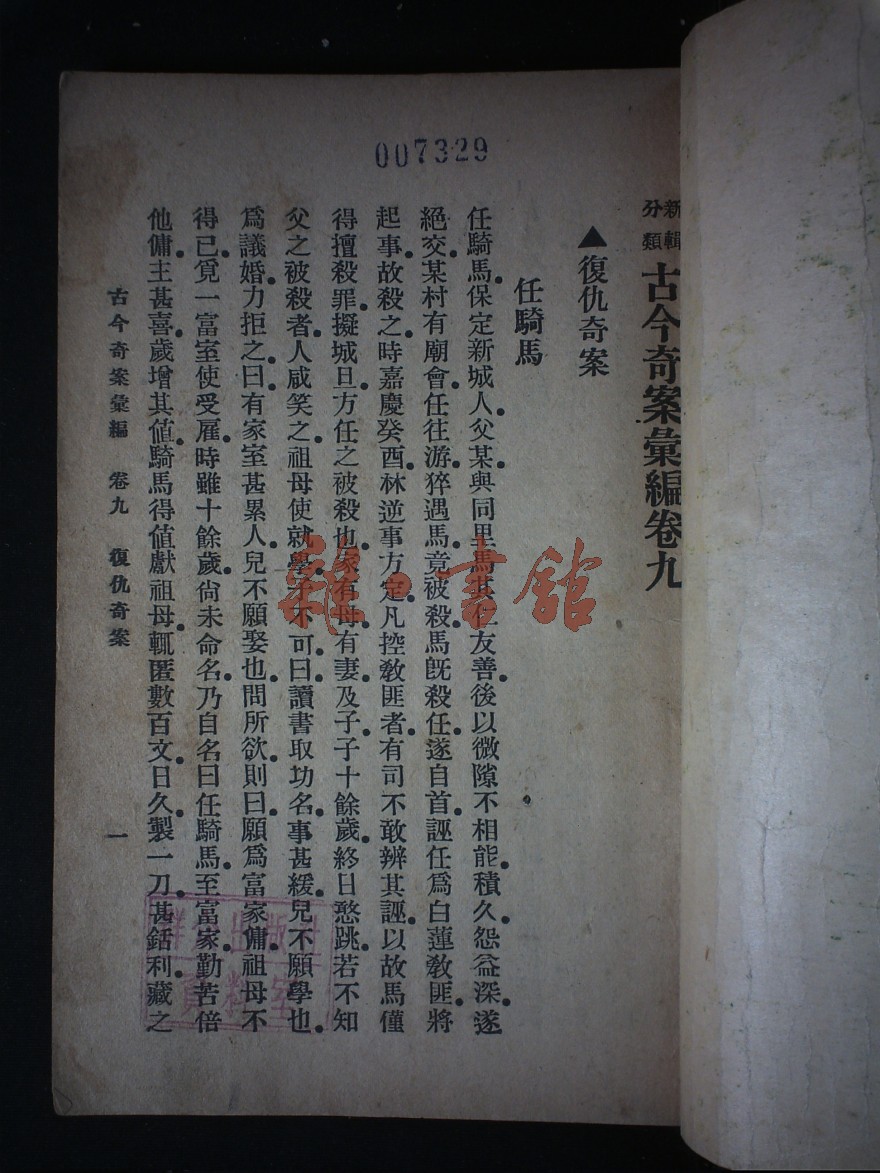 007329
新輯分類 古今奇案彙編卷九
▲復仇奇案
任騎馬
任騎馬。保定新城人。父某與同里馬其仁友善。後以微隙不相能。積久怨益深。遂
絕交。某村有廟會。任往游。猝遇馬。竟被殺。馬既殺任。遂自首。誣任為白蓮教匪。將
起事。故殺之。時嘉慶癸酉。林逆事方定。凡控教匪者。有司不敢辨其誣。以故馬僅
得擅殺罪。擬城旦。方任之被殺也。家有母。有妻及子。子十餘歲。終日憨跳。若不知
父之被殺者。人咸笑之。祖母使就學。子不可。曰。讀書取功名。事甚緩。兒不願學也。
為議婚。力拒之。曰。有家室甚累人。兒不願娶也。問所欲。則曰。願為富家傭。祖母不
得已。覓一富室使受雇。時雖十餘歲。尚未命名。乃自名曰任騎馬。至富家。勤苦倍
他傭。主甚喜。歲增其值。騎馬得值獻祖母。輒匿數百文。日久。製一刀。甚銛利。藏之
古今奇案彙編 卷九 復仇奇案 一
雜·書館
群众出版社
資料室